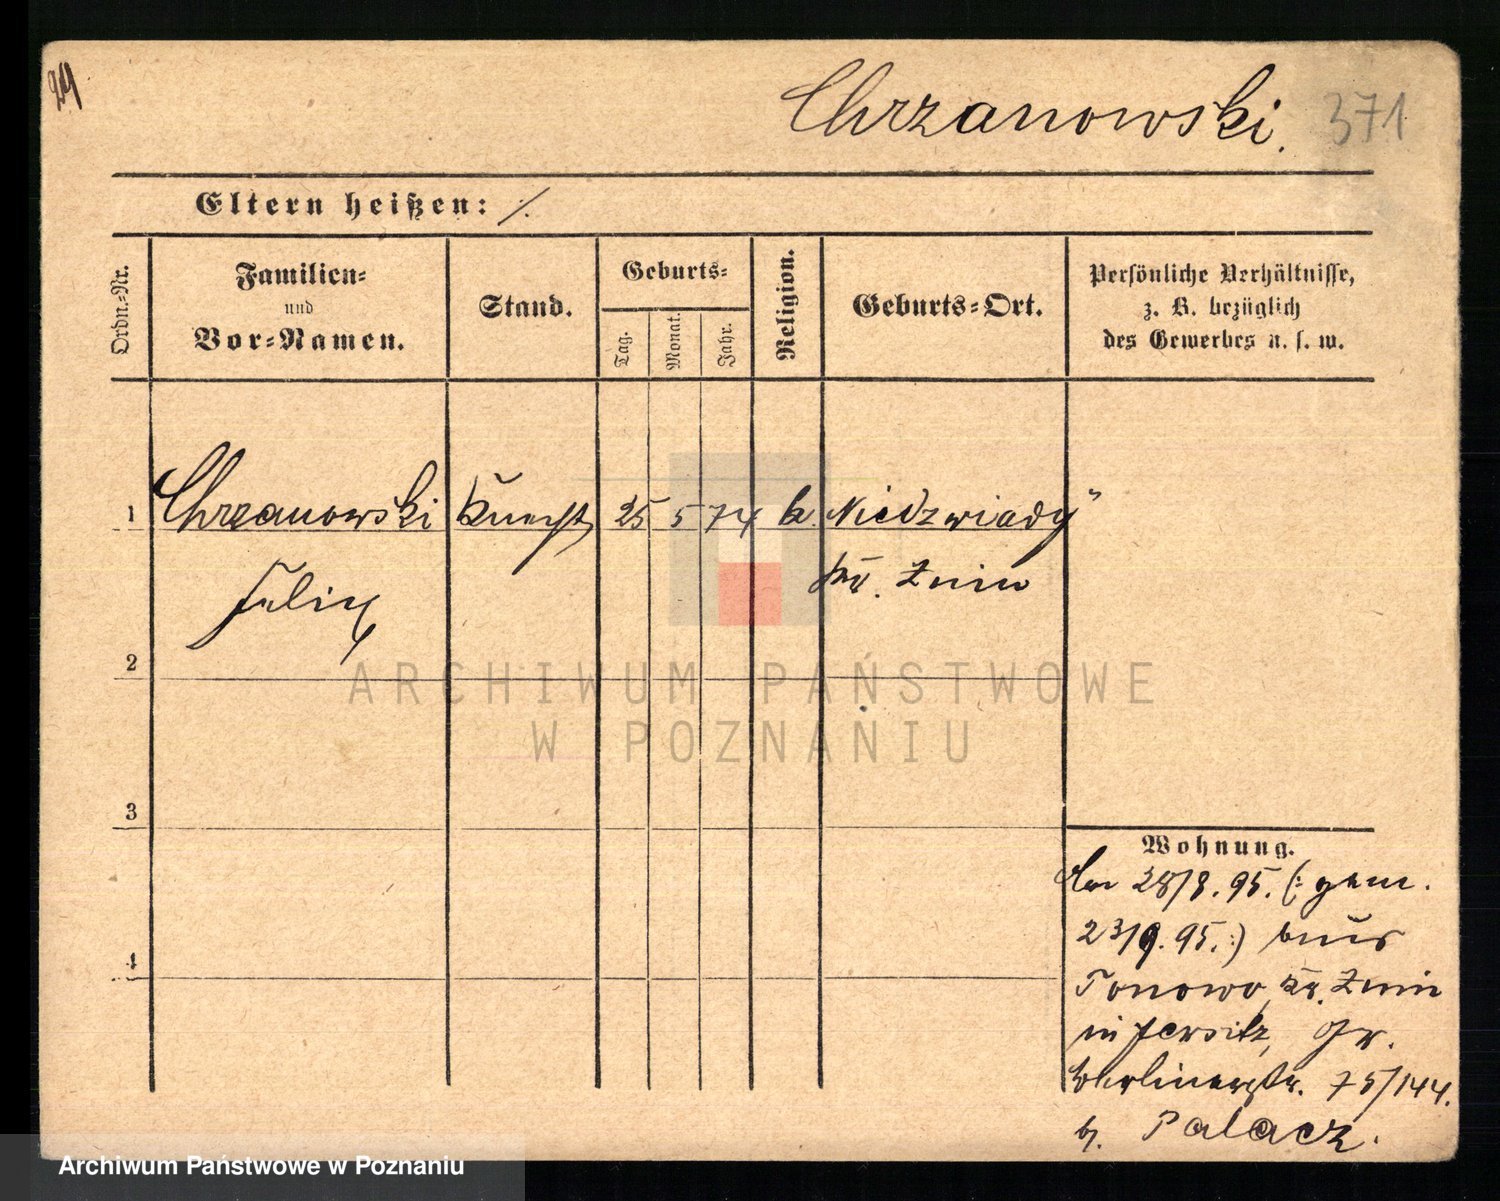 24
Chrzanowski. 371
Eltern heißen: ./.
Ordn.-Nr.
Familien-
und
Vor-Namen.
Stand.
Geburts-
Tag.
Monat.
Jahr.
Religion.
Geburts-Ort.
Persönliche Verhältnisse,
z. B. bezüglich
des Gewerbes u. s. w.
1 Chrzanowski Knecht 25 5 74 k. Niedzwiady
Felix Kr. Znin
2
3
4
Wohnung.
Am 28/8. 95. (: gem.
23/9. 95. :) aus
Tonowo, Kr. Znin
in Jersitz, Gr.
Berlinerstr. 75/144.
b. Palacz.
ARCHIWUM PAŃSTWOWE
W POZNANIU
Archiwum Państwowe w Poznaniu